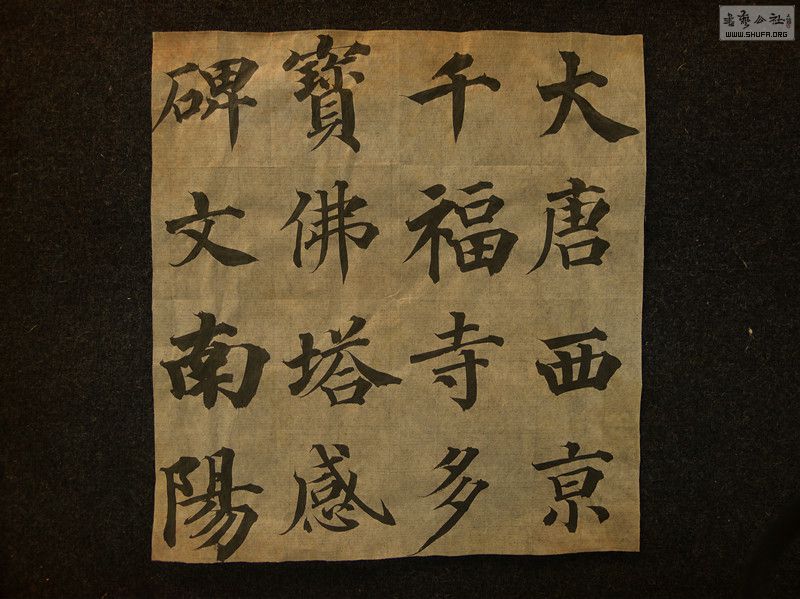 大唐西京
千福寺多
寶佛塔感
碑文南陽
書藝公社
WWW.SHUFA.ORG